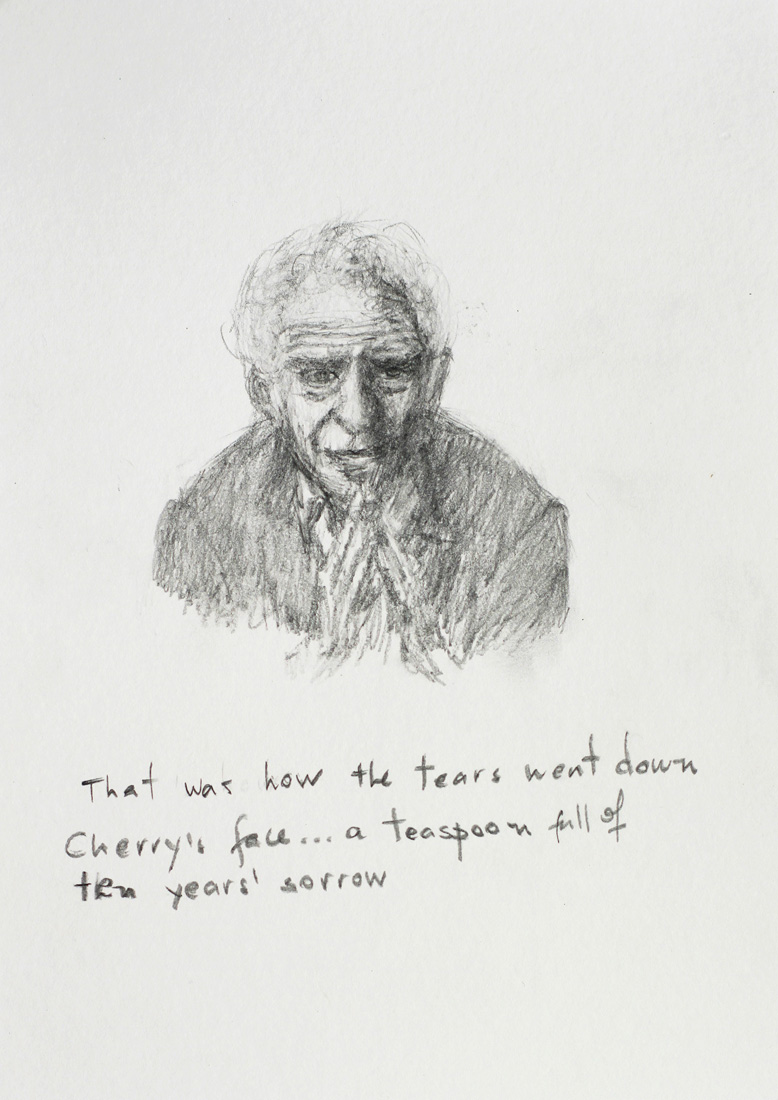 That was how the tears went down
Cherry's face... a teaspoon full of
ten years' sorrow